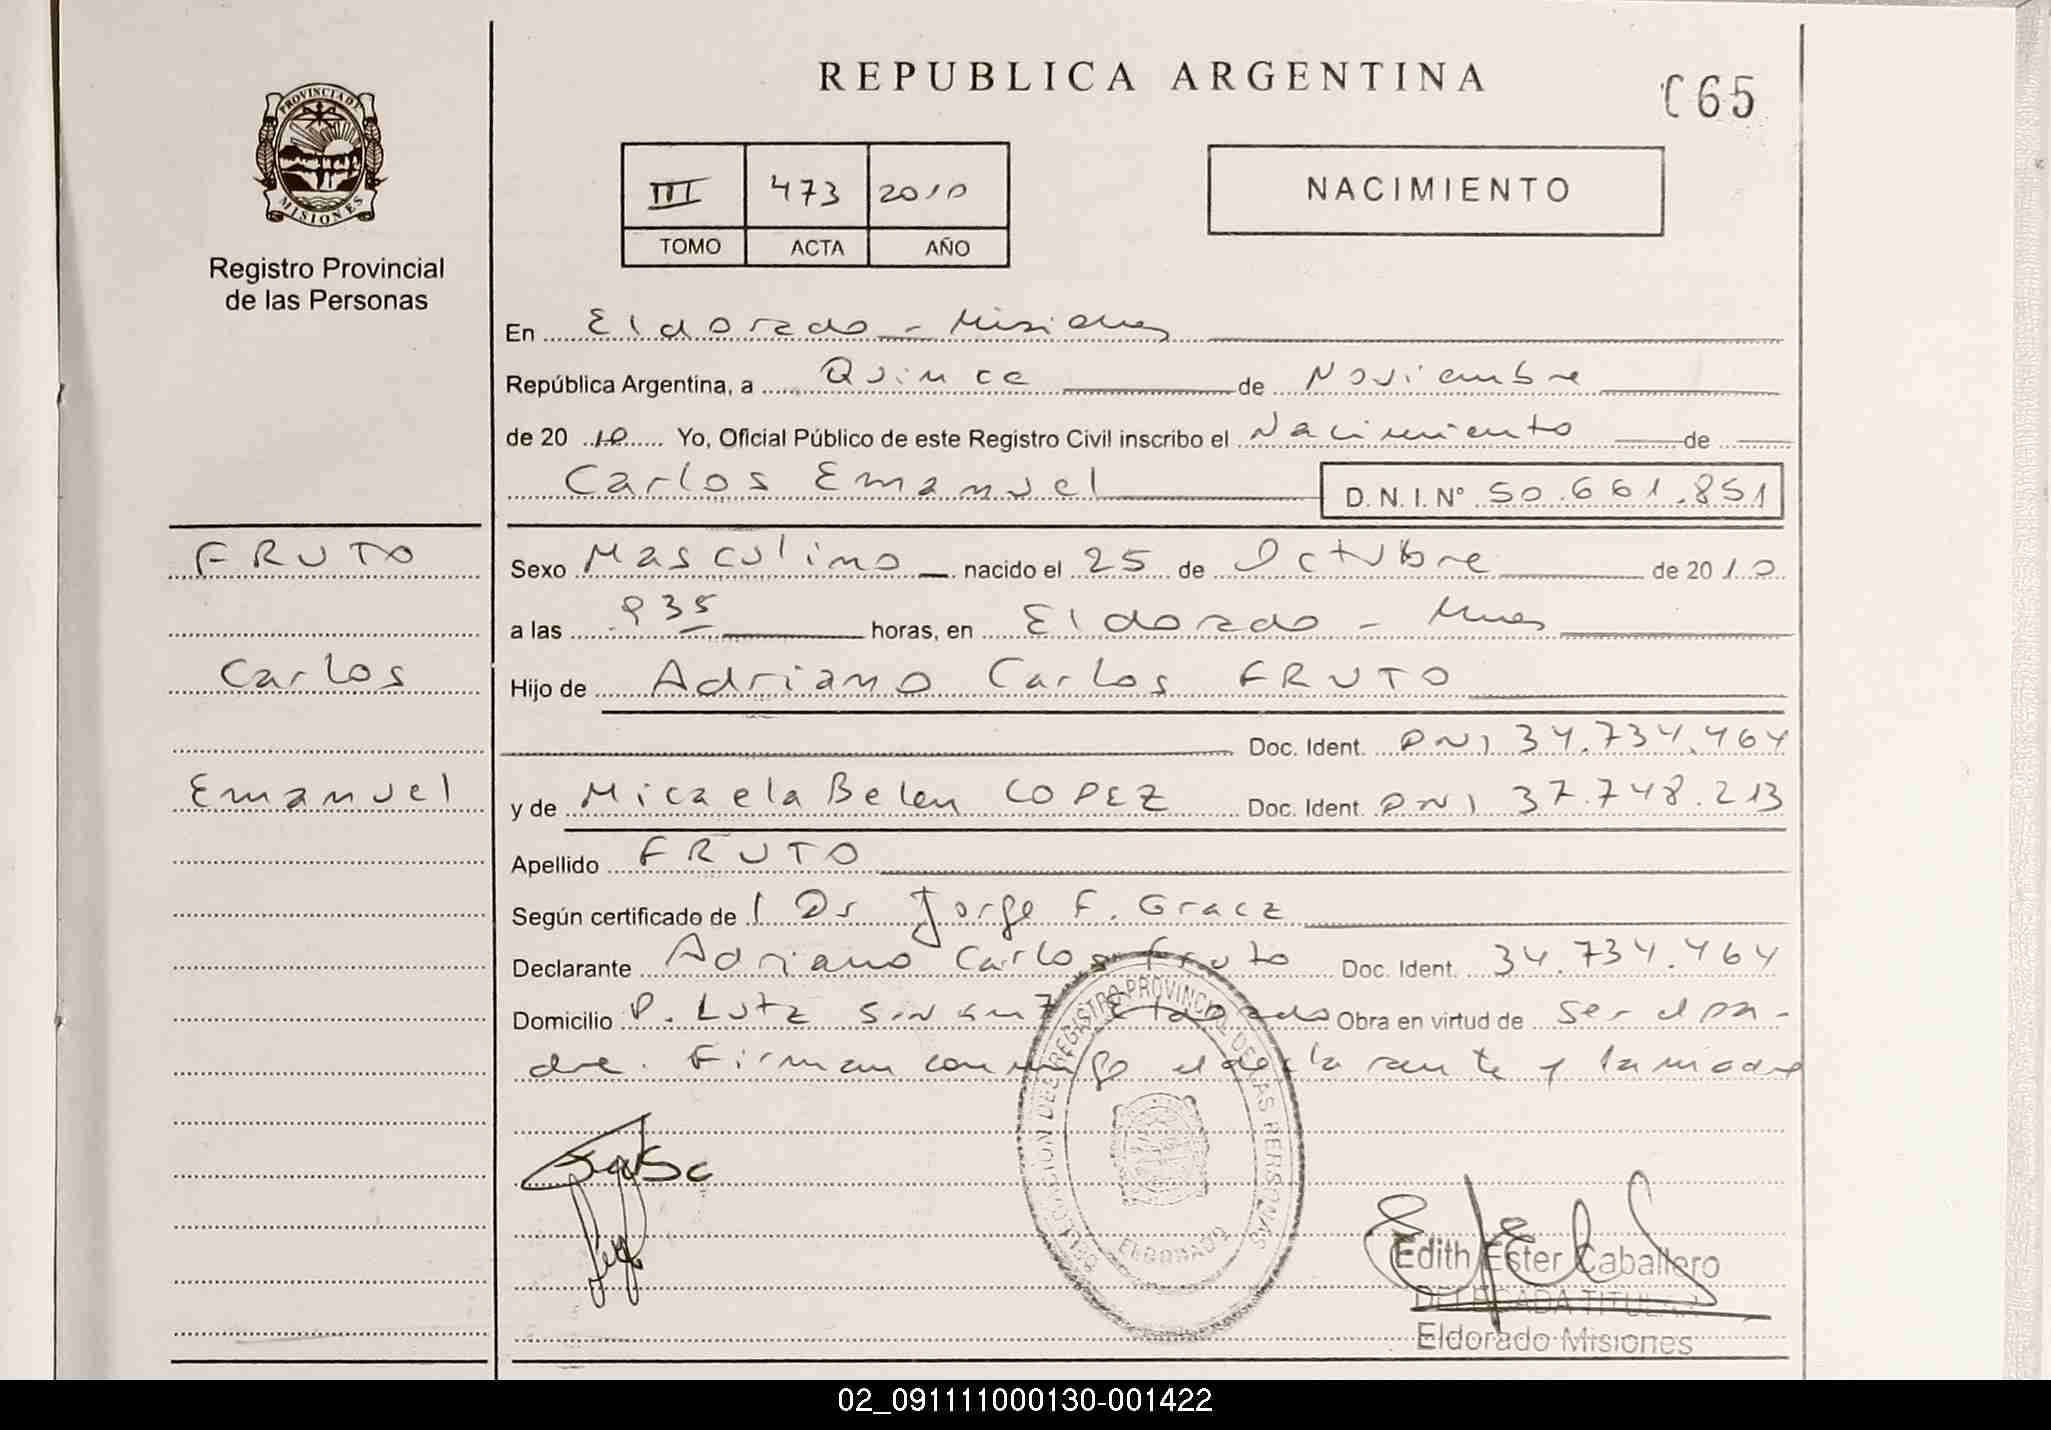 REPUBLICA ARGENTINA
C65
PROVINCIA DE
MISIONES
Registro Provincial
de las Personas
III 473 2010
TOMO ACTA AÑO
NACIMIENTO
En Eldorado - Misiones
República Argentina, a Quince de Noviembre
de 20 10 Yo, Oficial Público de este Registro Civil inscribo el Nacimiento de
Carlos Emanuel D. N. I. N° 50.661.851
FRUTO
Carlos
Emanuel
Sexo Masculino nacido el 25 de Octubre de 2010
a las 935 horas, en Eldorado - Mnes
Hijo de Adriano Carlos FRUTO
Doc. Ident. DNI 34.734.464
y de Micaela Belen LOPEZ Doc. Ident. DNI 37.748.213
Apellido FRUTO
Según certificado de l Dr Jorge F. Gracz
Declarante Adriano Carlos Fruto Doc. Ident. 34.734.464
Domicilio P. Lutz Eldorado Obra en virtud de ser el pa-
dre. Firman conmigo el declarante y la madre
DELEGACION DEL REGISTRO PROVINCIAL DE LAS PERSONAS
ELDORADO
Edith Ester Caballero
DELEGADA TITULAR
Eldorado Misiones
02_091111000130-001422